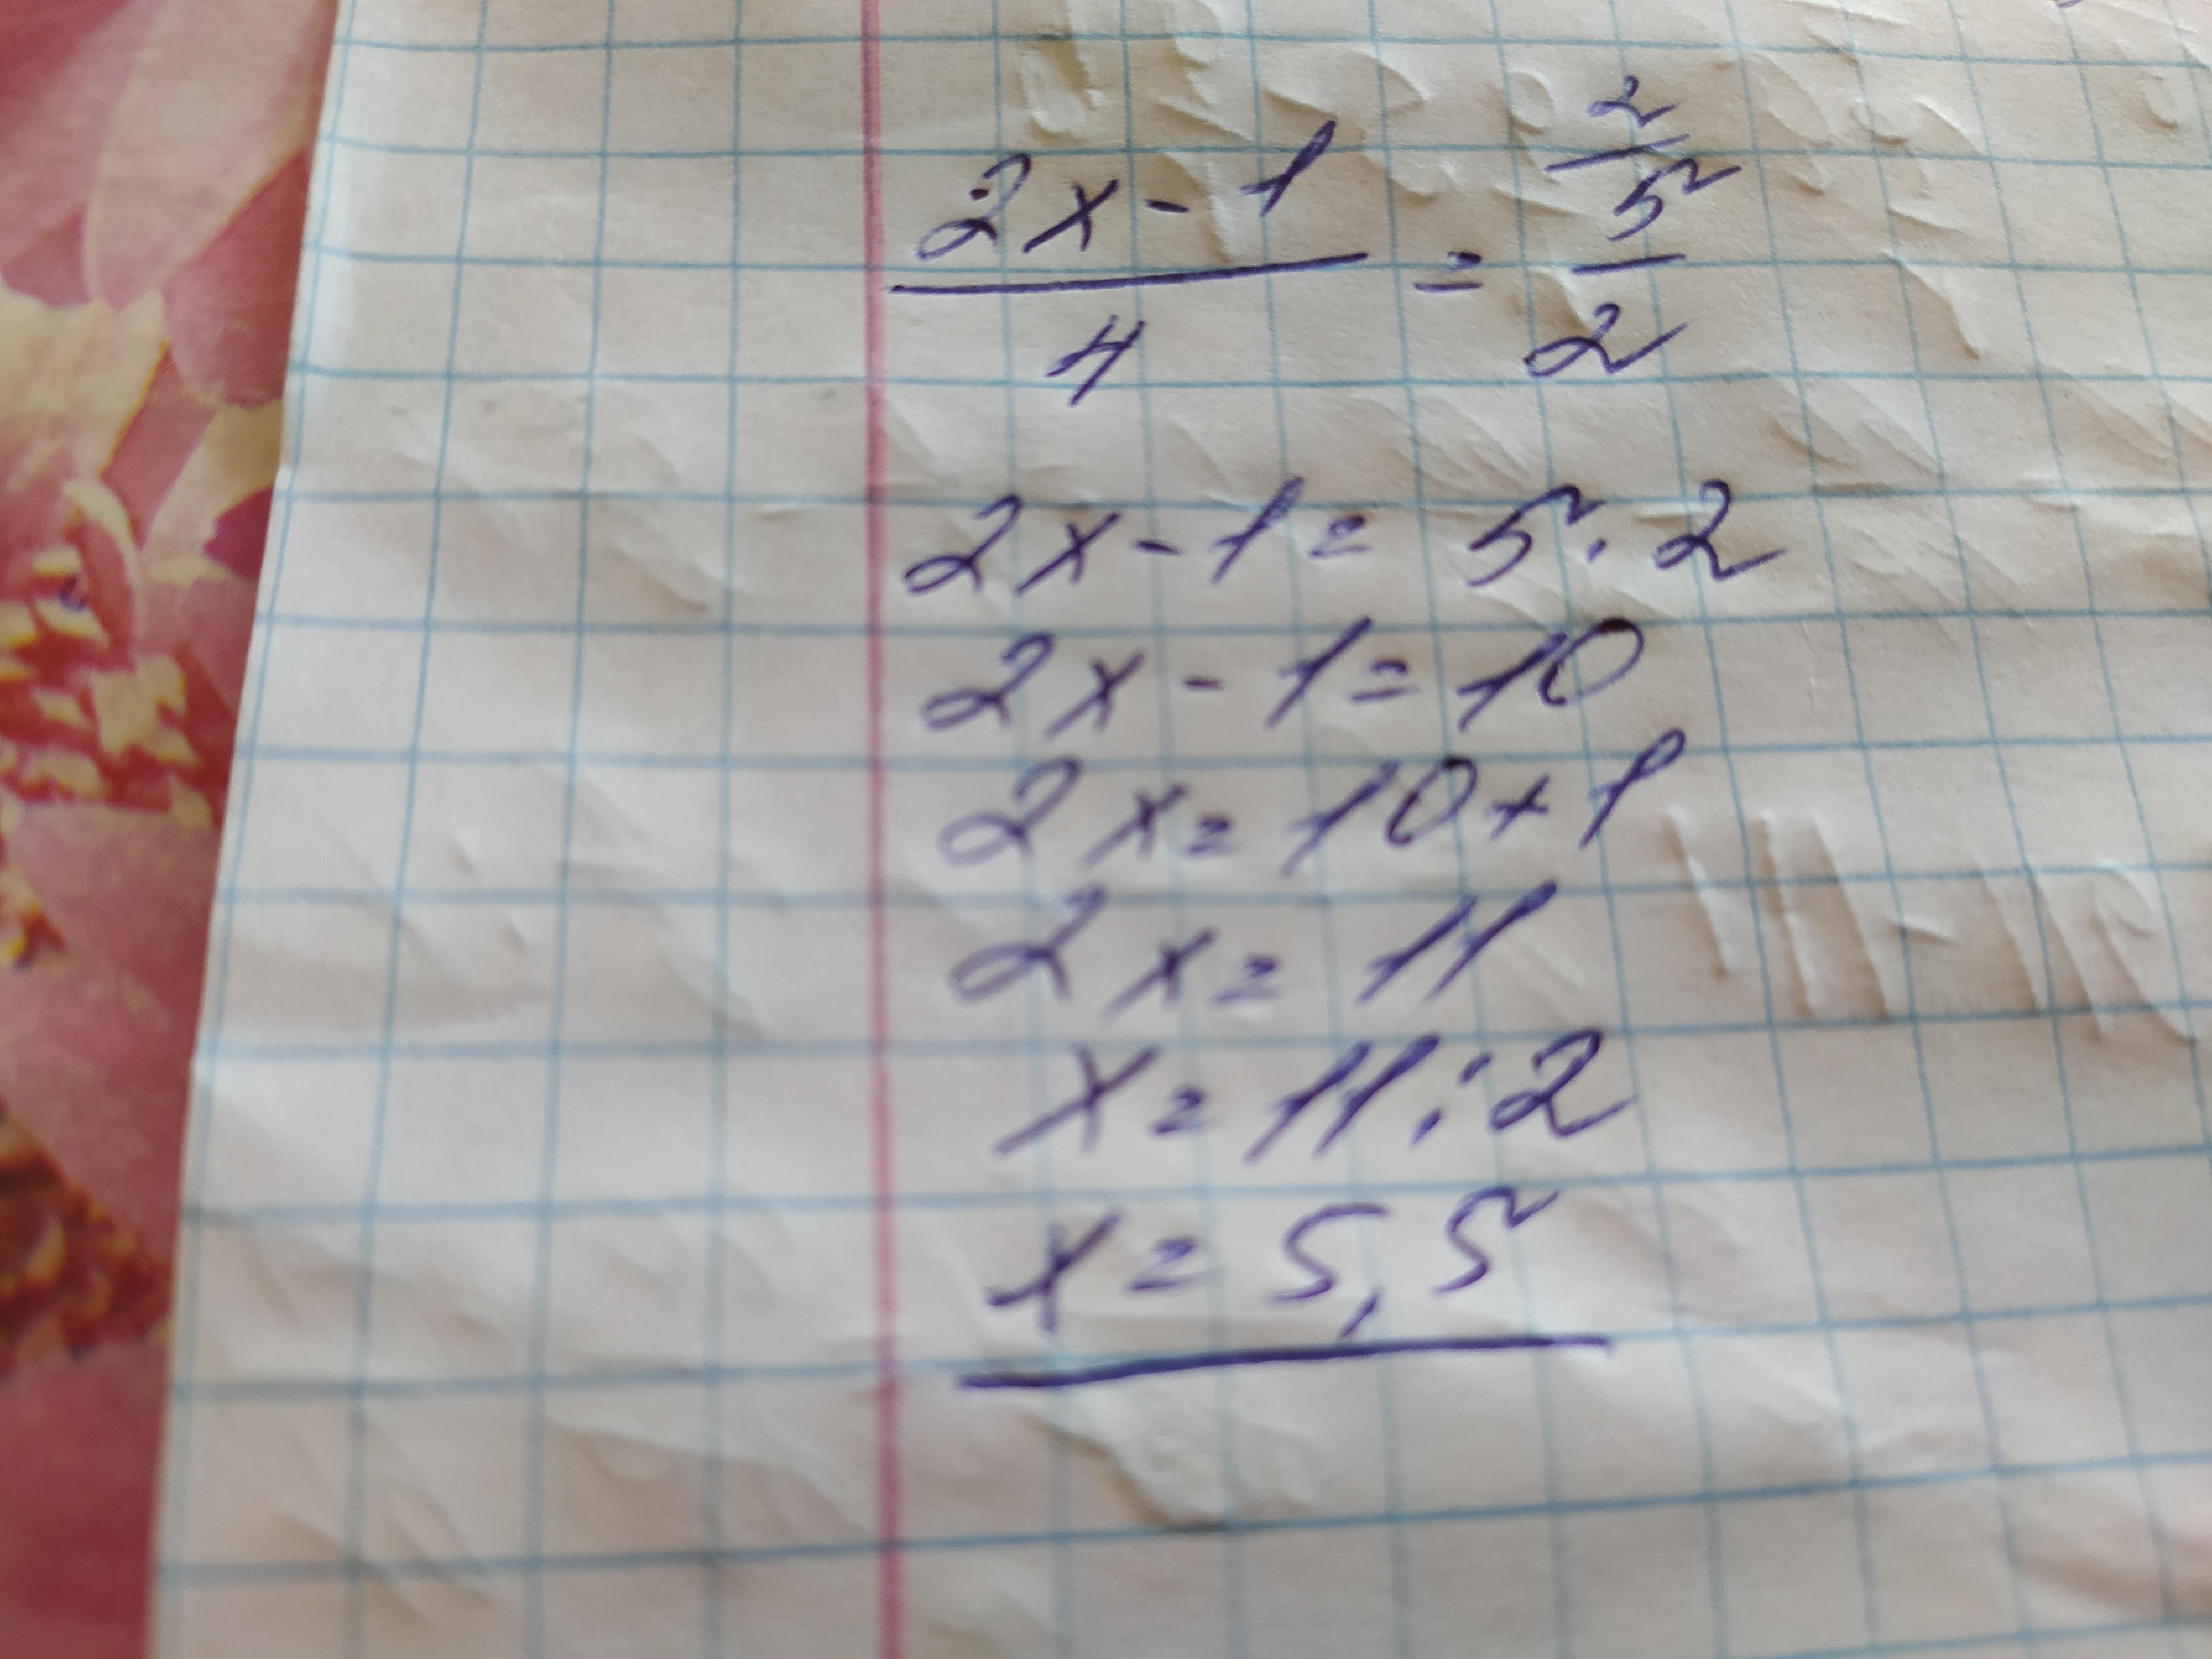 2x-1/4 = 2/ 5/2
2x-1=5·2
2x-1=10
2x=10+1
2x=11
x=11:2
x=5,5